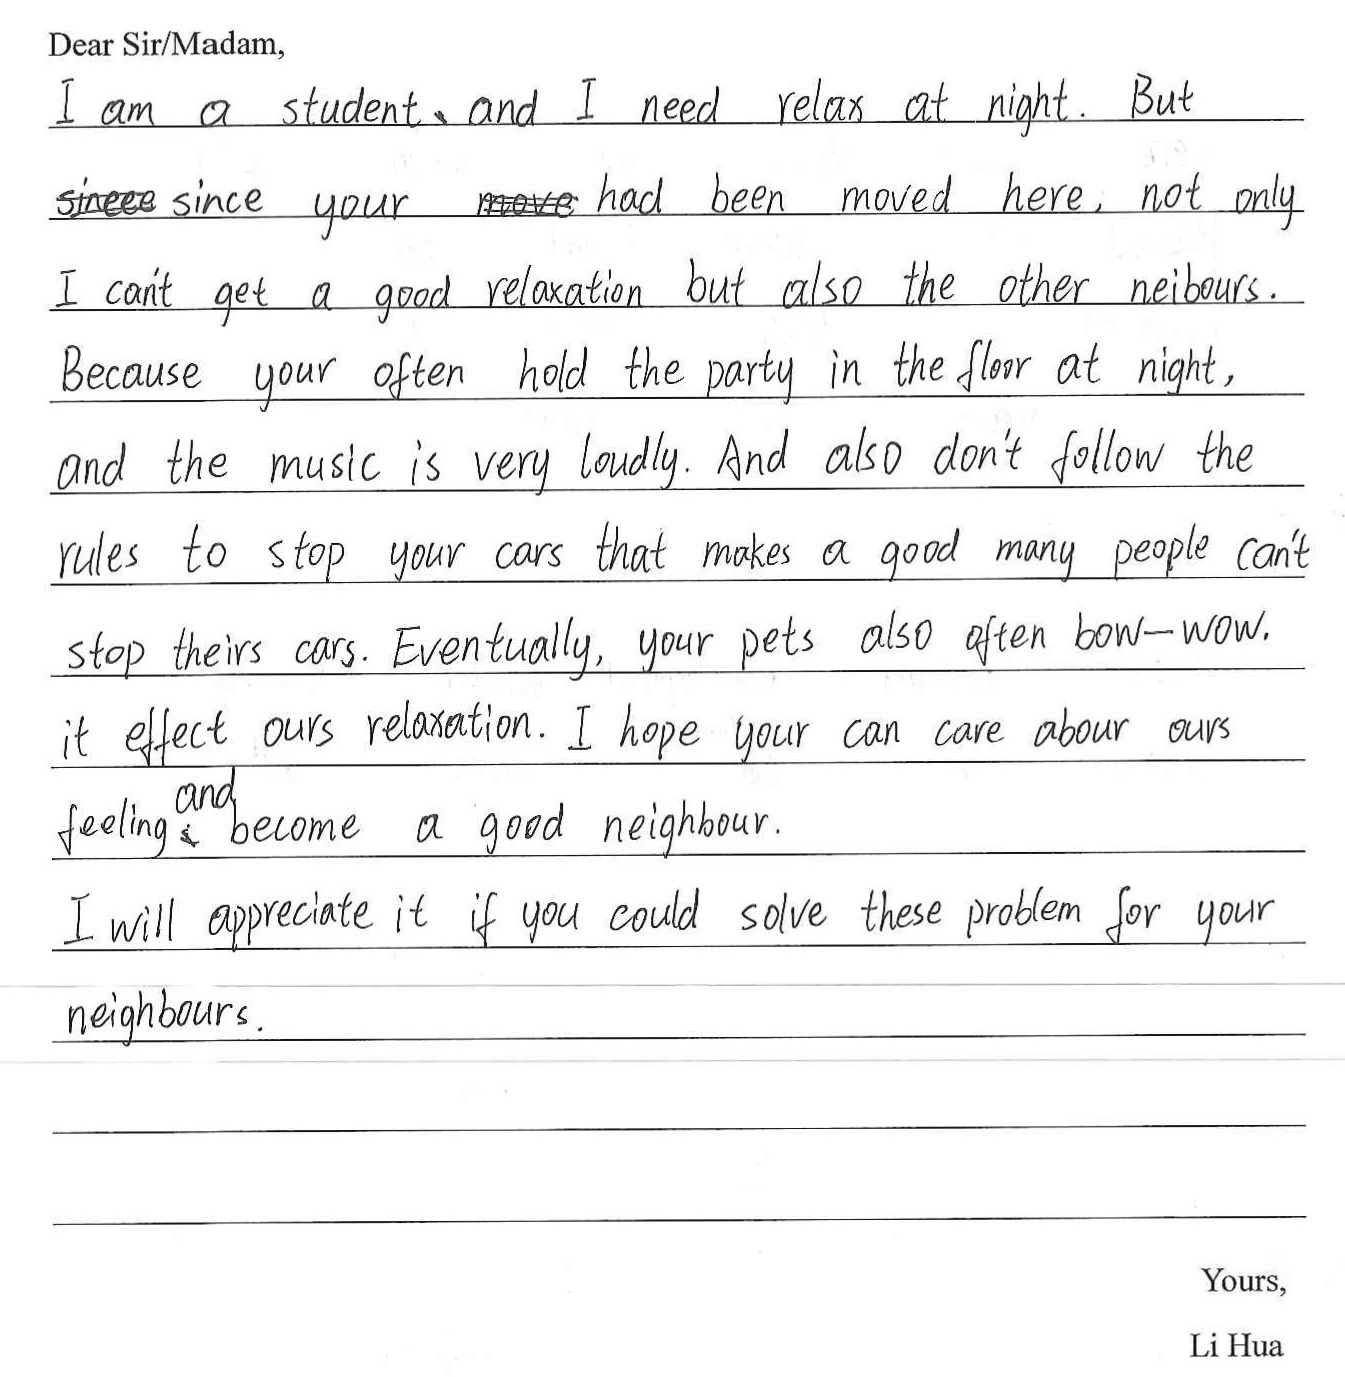 Dear Sir/Madam,
I am a student、and I need relax at night. But
since your had been moved here, not only
I can't get a good relaxation but also the other neibours.
Because your often hold the party in the floor at night,
and the music is very loudly. And also don't follow the
rules to stop your cars that makes a good many people can't
stop theirs cars. Eventually, your pets also often bow-wow.
it effect ours relaxation. I hope your can care abour ours
feeling and become a good neighbour.
I will appreciate it if you could solve these problem for your
neighbours.
Yours,
Li Hua